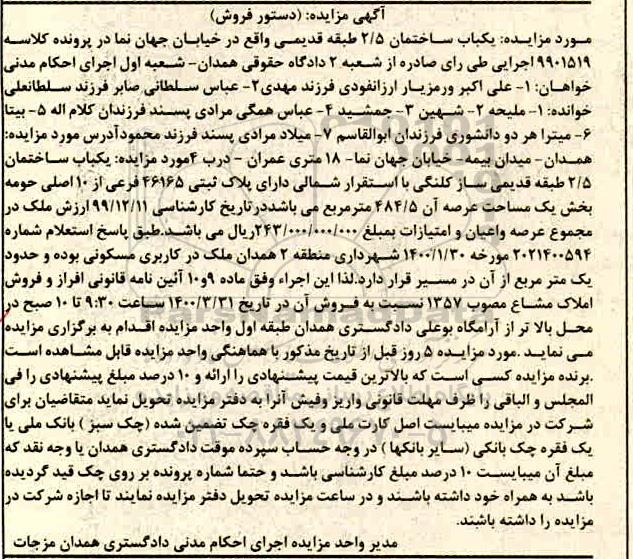 آگهی مزایده: (دستور فروش)
مـورد مزایـده: یکباب سـاختمان ۲/۵ طبقه قدیمـی واقع در خیابان جهان نما در پرونده کلاسـه
۹۹۰۱۵۱۹ اجرایی طی رای صادره از شعبه ۲ دادگاه حقوقی همدان- شعبه اول اجرای احکام مدنی
خواهـان: ۱- علی اکبر ورمزیـار ارزانفودی فرزند مهدی۲- عباس سـلطانی صابر فرزند سـلطانعلی
خوانده: ۱- ملیحه ۲- شـهین ۳- جمشـید ۴- عباس همگی مرادی پسـند فرزندان کلام اله ۵- بیتا
۶- میترا هر دو دانشوری فرزندان ابوالقاسم ۷- میلاد مرادی پسند فرزند محمودآدرس مورد مزایده:
همـدان- میدان بیمه- خیابان جهان نما- ۱۸ متری عمران - درب ۴مورد مزایده: یکباب ساختمان
۲/۵ طبقه قدیمی ساز کلنگی با استقرار شمالی دارای پلاک ثبتی ۴۶۱۶۵ فرعی از ۱۰ اصلی حومه
بخش یک مساحت عرصه آن ۴۸۴/۵ مترمربع می باشددر تاریخ کارشناسی ۹۹/۱۲/۱۱ ارزش ملک در
مجموع عرصه واعیان و امتیازات بمبلغ ۲۴۳/۰۰۰/۰۰۰/۰۰۰ریال می باشـد.طبق پاسخ استعلام شماره
۲۰۲۱۴۰۰۵۹۴ مورخه ۱۴۰۰/۱/۳۰ شـهرداری منطقه ۲ همدان ملک در کاربری مسکونی بوده و حدود
یک متر مربع از آن در مسیر قرار دارد.لذا این اجراء وفق ماده ۹و۱۰ آئین نامه قانونی افراز و فروش
املاک مشـاع مصوب ۱۳۵۷ نسـبت به فـروش آن در تاریخ ۱۴۰۰/۳/۳۱ سـاعت ۹:۳۰ تا ۱۰ صبح در
محـل بالا تر از آرامگاه بوعلی دادگسـتری همدان طبقه اول واحد مزایده اقدام به برگزاری مزایده
می نمایـد .مورد مزایـده ۵ روز قبل از تاریخ مذکور با هماهنگی واحد مزایده قابل مشـاهده اسـت
.برنده مزایده کسـی اسـت که بالاترین قیمت پیشـنهادی را ارائه و ۱۰ درصد مبلغ پیشنهادی را فی
المجلس و الباقی را ظرف مهلت قانونی واریز وفیش آنرا به دفتر مزایده تحویل نماید متقاضیان برای
شـرکت در مزایده میبایسـت اصل کارت ملی و یک فقره چک تضمین شده (چک سبز ) بانک ملی یا
یک فقره چک بانکی (سـایر بانکها ) در وجه حساب سپرده موقت دادگستری همدان یا وجه نقد که
مبلغ آن میبایسـت ۱۰ درصد مبلغ کارشناسی باشـد و حتما شماره پرونده بر روی چک قید گردیده
باشـد به همراه خود داشـته باشـند و در ساعت مزایده تحویل دفتر مزایده نمایند تا اجازه شرکت در
مزایده را داشته باشند.
مدیر واحد مزایده اجرای احکام مدنی دادگستری همدان مزجات